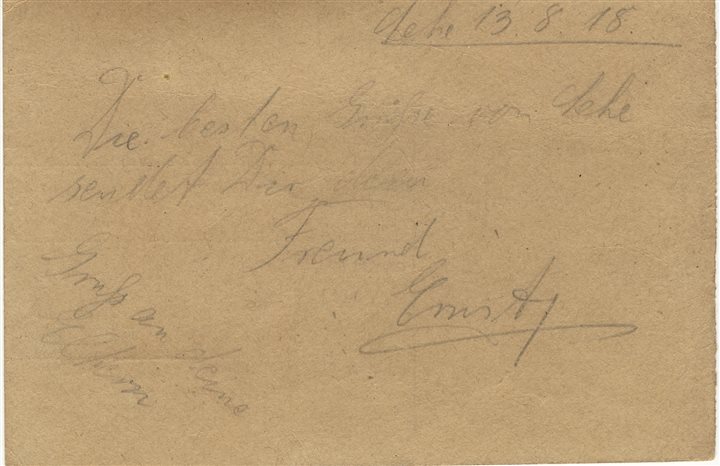 Lehe 13. 8. 18.
Die besten Grüße von Lehe
sendet Dir dein
Freund
Ernst
Gruß an deine
Eltern